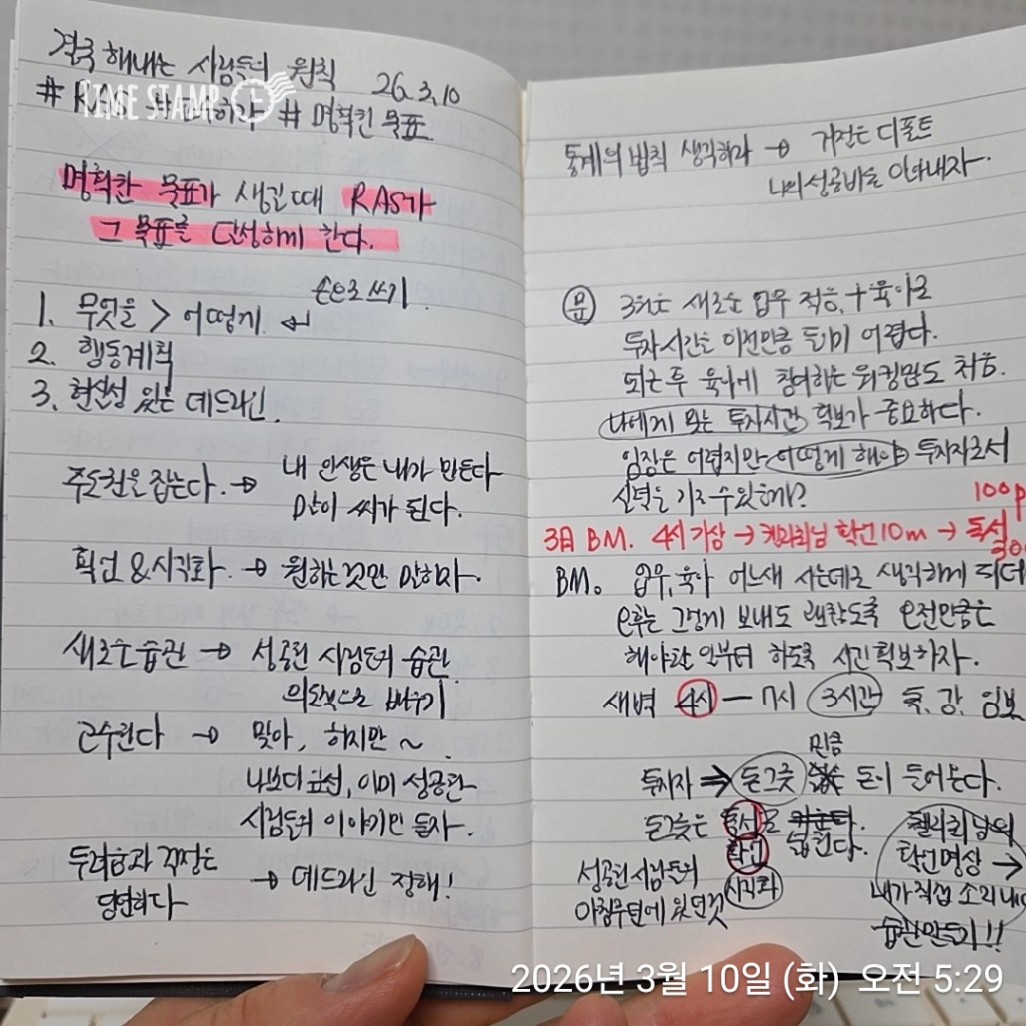 결국 해내는 사람들의 원칙 26.3.10
TIME STAMP
# RAS # # 명확한 목표
명확한 목표가 생길 때 RAS가
그 목표를 달성하게 한다.
손으로 쓰기
1. 무엇을 > 어떻게
2. 행동계획
3. 현실성 있는 데드라인.
주도권을 잡는다. → 내 인생은 내가 만든다
말이 씨가 된다.
확언 & 시각화. → 원하는 것만 말하자.
새로운 습관 → 성공한 사람들의 습관
의도적으로 배우기
고수한다 → 맞아, 하지만 ~
나보다 먼저, 이미 성공한
사람들의 이야기만 듣자.
두려움과 걱정은
당연하다 → 데드라인 정해!
통계의 법칙 생각하라 → 거절은 디폴트
나의 성공비율 알아내자.
3월은 새로운 업무 적응, + 육아로
투자시간을 이전만큼 들이기 어렵다.
퇴근 후 육아에 참여하는 워킹맘도 처음.
나에게 맞는 투자시간 확보가 중요하다.
임장은 어렵지만 어떻게 해야 투자자로서
실력을 기를 수 있을까?
100p
3日 BM. 4시 기상 → 켈리최님 확언 10m → 독서
BM. 업무, 육아 어느새 사는대로 생각하게 되더
오후는 그렇게 보내도 괜찮도록 오전만큼은
해야 할 일부터 하도록 시간 확보하자.
새벽 4시 - 7시 3시간 독, 강, 임보
만큼
투자자 ⇒ 돈그릇 돈이 들어온다.
돈그릇은 독서로
확언 넓힌다.
시각화
성공한 사람들의
아침루틴에 있던 것
켈리최님의
확언명상 →
내가 직접 소리내어
습관만들기!!
2026년 3월 10일 (화) 오전 5:29